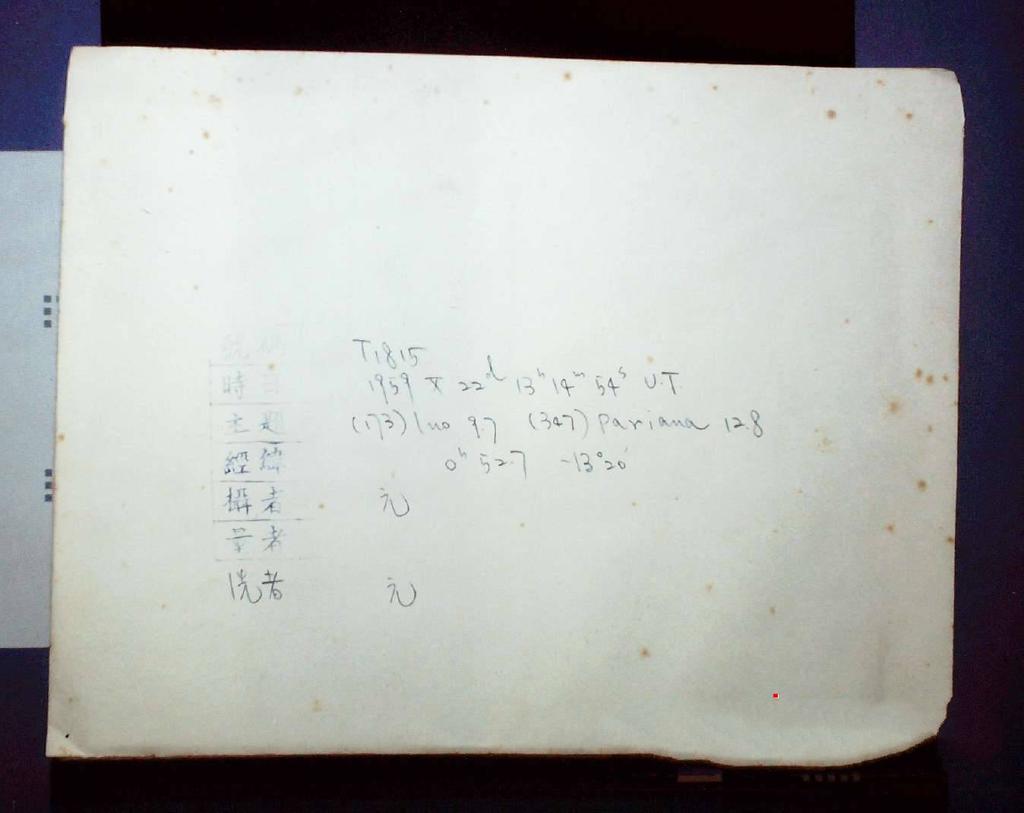 號碼 T1815
時日 1959 X 22d 13h 14m 54s U.T.
主題 (173) Ino 9.7 (347) Pariana 12.8
經緯 0h 52.7 -13°20'
攝者 元
量者
洗者 元